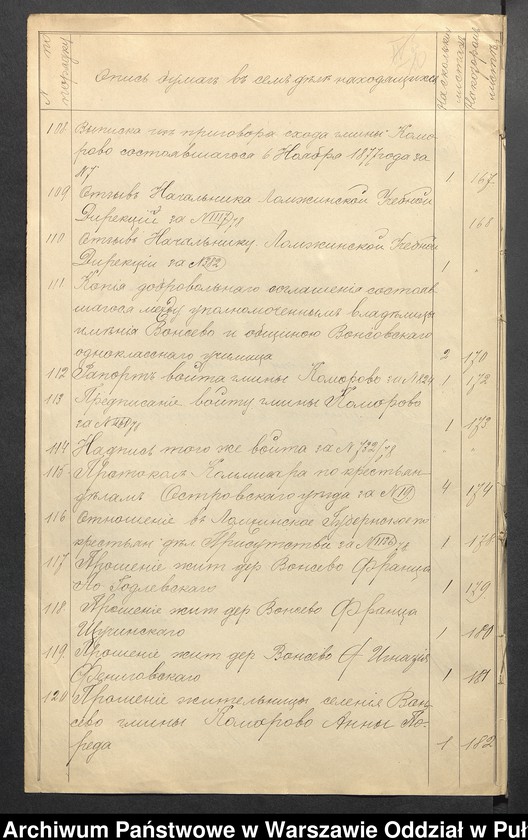 № по порядку
Опись бумаг въ семъ дѣлѣ находящихся
На сколькихъ листахъ
На которомъ листѣ
108 Выписка изъ приговора схода гмины Комо-
рово состоявшагося 6 Ноября 1877 года за
№7 1 167
109 Отзывъ Начальника Ломжинской Учебной
Дирекціи за № /78 168
110 Отзывъ Начальнику Ломжинской Учебной
Дирекціи за № 1 "
111 Копія добровольнаго соглашенія состояв-
шагося между уполномоченнымъ владѣльцы
имѣнія Вонсево и общиною Вонсовскаго
однокласснаго училища 2 170
112 Рапортъ войта гмины Коморово за №824 1 172
113 Предписаніе войту гмины Коморово
за № /78 1 173
114 Надпись того же войта за №732/78 " "
115 Протоколъ Коммисара по крестьян
дѣламъ Островскаго уѣзда за № 4 174
116 Отношеніе въ Ломжинское Губернское по
крестьян дѣл Присутствіе за № /78 1 178
117 Прошеніе жит дер Вонсево Франца
Годлевскаго 1 179
118 Прошеніе жит дер Вонсево Франца
Щучинскаго 1 180
119 Прошеніе жит дер Вонсево Игнація
1 181
120 Прошеніе жительницы селенія Вон-
сево гмины Коморово Анны По-
реда 1 182
Archiwum Państwowe w Warszawie Oddział w Puł